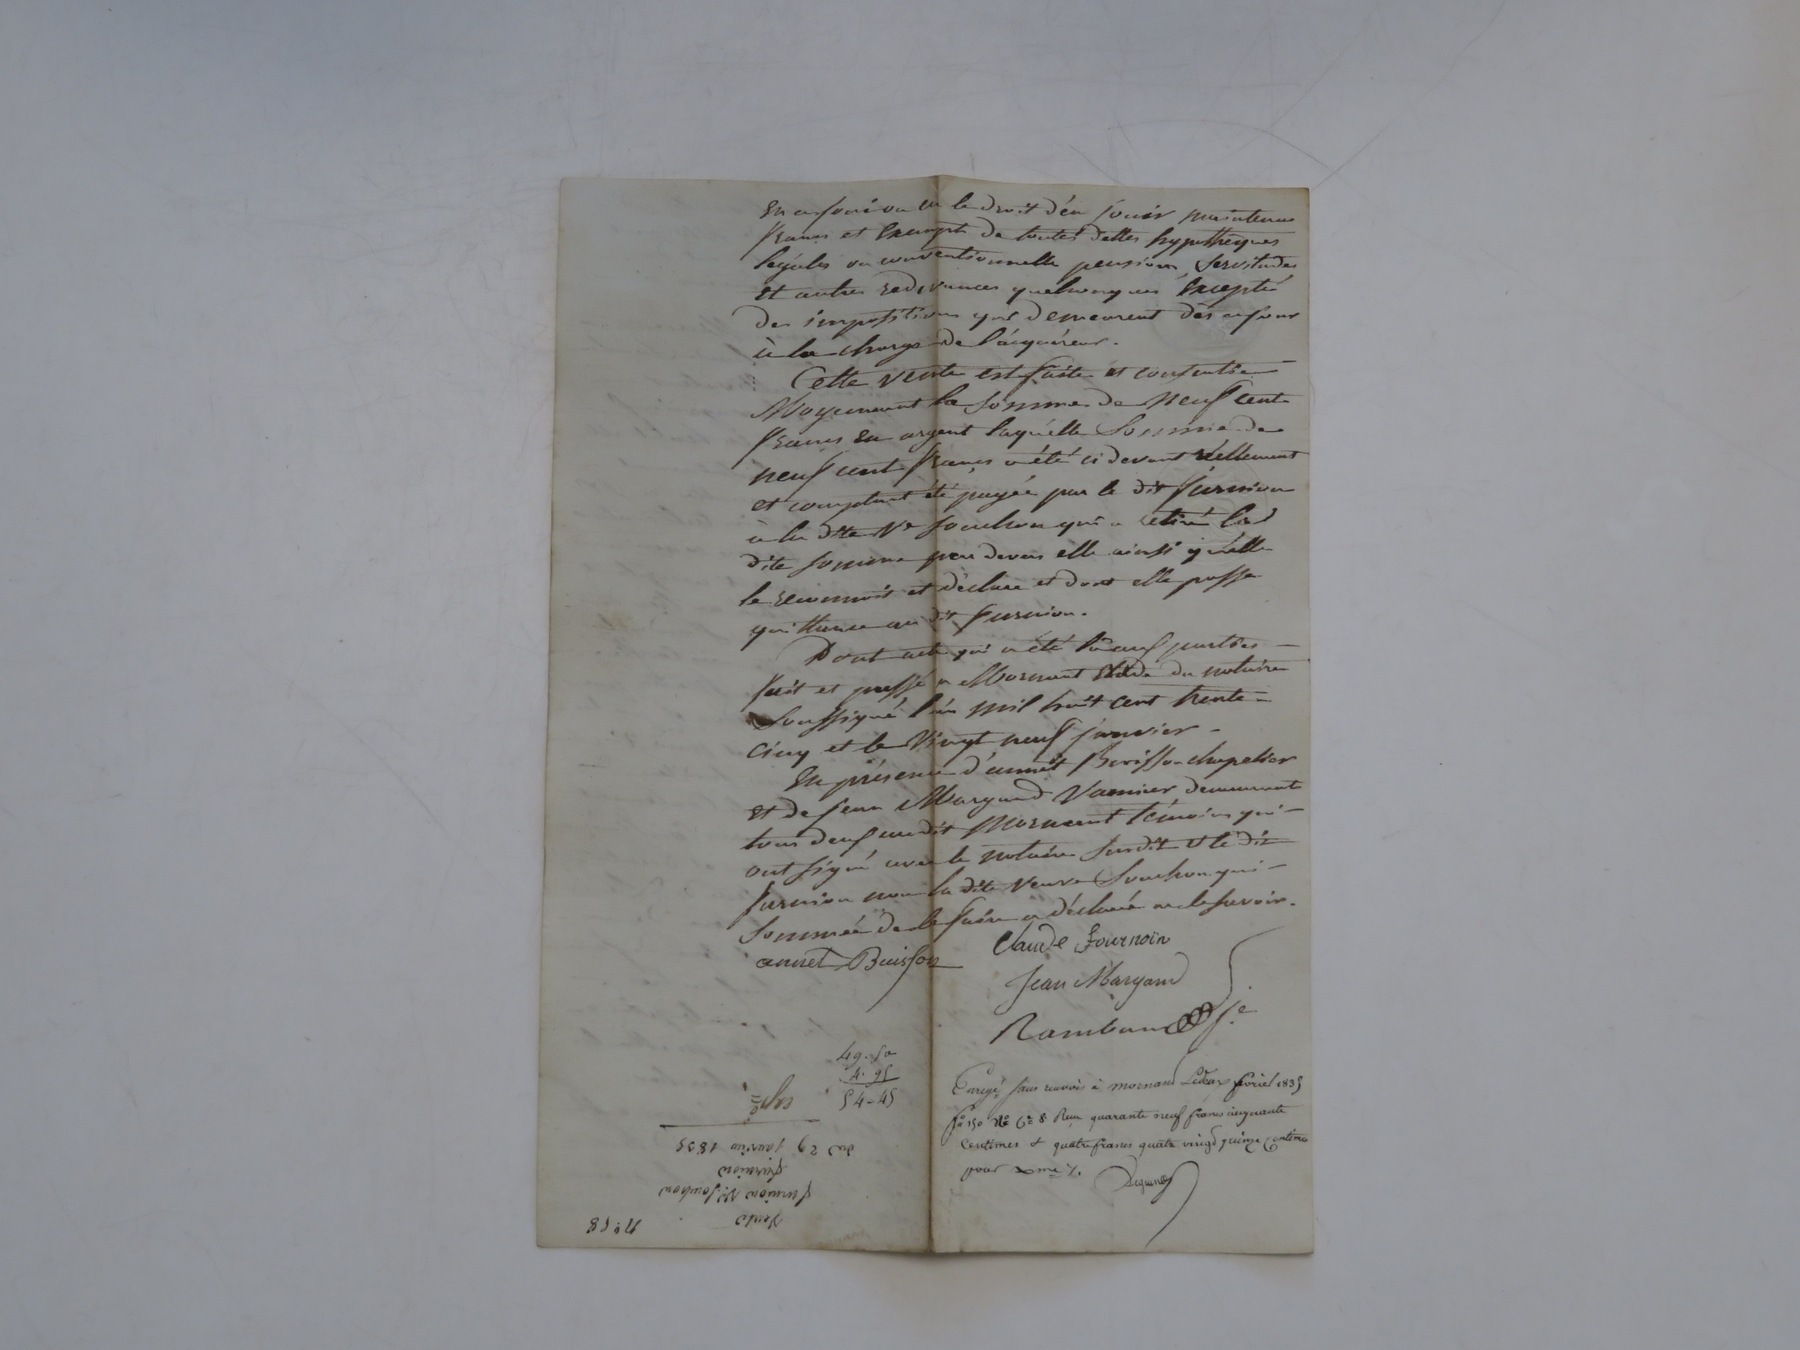 en a joui ou eu le droit d'en jouir maintenus
francs et exempts de toutes dettes hypothèques
légales ou conventionnelle pensions, servitudes
et autres redevances quelconques Excepté
des impositions qui demeurent dès ce jour
à la charge de l'acquéreur.
Cette vente est faite et consentie
Moyennant la somme de neuf cents
francs en argent laquelle Somme de
neuf cent francs a été ci devant réellement
et comptant été payée par le dit furnion
à la dtte Ve Souchon qui a retiré la
dite somme par devers elle ainsi qu'elle
le reconnoit et déclare et dont elle passe
quittance au dit furnion.
Dont acte qui a été lu aux parties
fait et passé à Mornant Etude du notaire
Soussigné l'an mil huit cent trente
cinq et le Vingt neuf janvier.
En présence d'annet Buisson chapelier
et de Jean Margand Vannier demeurant
tous deux au dit Mornant témoins qui
ont signé avec le notaire susdit et le dit
furnion non la dite Veuve Souchon qui
sommée de le faire a déclaré ne le savoir.
Claude fournoin
annet Buisson
Jean Margand
Enregé sans renvois à mornant février 1835
fo 150 Vo Ce 8 Reçu quarante neuf francs cinquante
Centimes et quatre francs quatre vingt quinze Centimes
pour xme
49-50
4. 95
54-45
expé
du 29 janvier 1835
furnion
furnion Ve Souchon
Vente
No 58